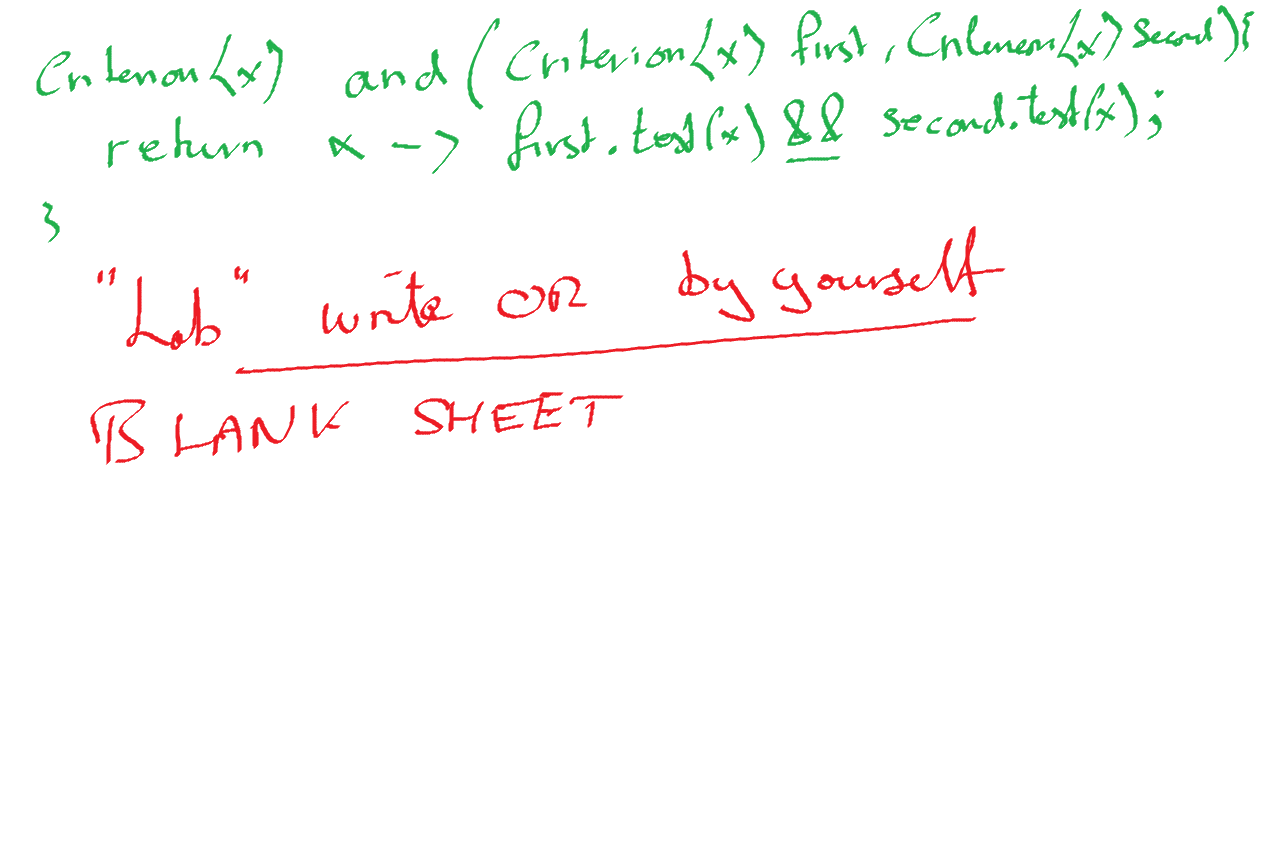 Criterion<x> and (Criterion<x> first, Criterion<x> second){
return x -> first.test(x) && second.test(x);
}
"Lab" write OR by yourself
BLANK SHEET